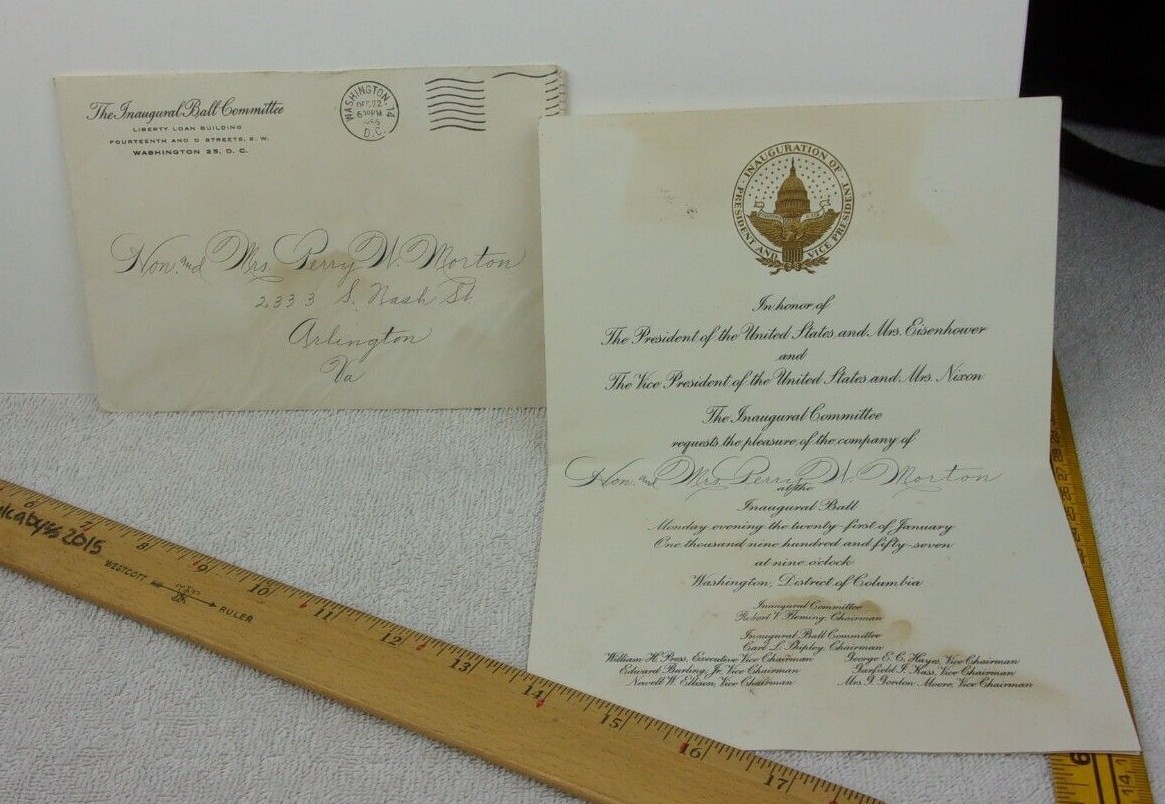 The Inaugural Ball Committee
LIBERTY LOAN BUILDING
FOURTEENTH AND D STREETS, S. W.
WASHINGTON 25, D. C.
WASHINGTON 14
DEC 22
6 PM
1956
D.C.
Hon. and Mrs. Perry W. Morton
2333 S. Nash St
Arlington
Va
INAUGURATION OF
PRESIDENT AND VICE PRESIDENT
In honor of
The President of the United States and Mrs. Eisenhower
and
The Vice President of the United States and Mrs. Nixon
The Inaugural Committee
requests the pleasure of the company of
Hon. and Mrs. Perry W. Morton
at the
Inaugural Ball
Monday evening the twenty-first of January
One thousand nine hundred and fifty-seven
at nine o'clock
Washington, District of Columbia
Inaugural Committee
Robert V. Fleming, Chairman
Inaugural Ball Committee
Carl L. Shipley, Chairman
William H. Press, Executive Vice Chairman
George E. C. Hayes, Vice Chairman
Edward Burling, Jr., Vice Chairman
Garfield I. Kass, Vice Chairman
Newell W. Ellison, Vice Chairman
Mrs. J. Gordon Moore, Vice Chairman
2015
WESTCOTT RULER
6 7 8 9 10 11 12 13 14 15 16 17